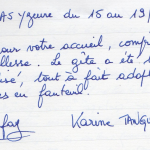 AS Yzeure du 15 au 19/
our votre accueil, compr
llesse. Le gîte a été
sé, tout à fait adap
es en fauteuil.
Karine TANGU